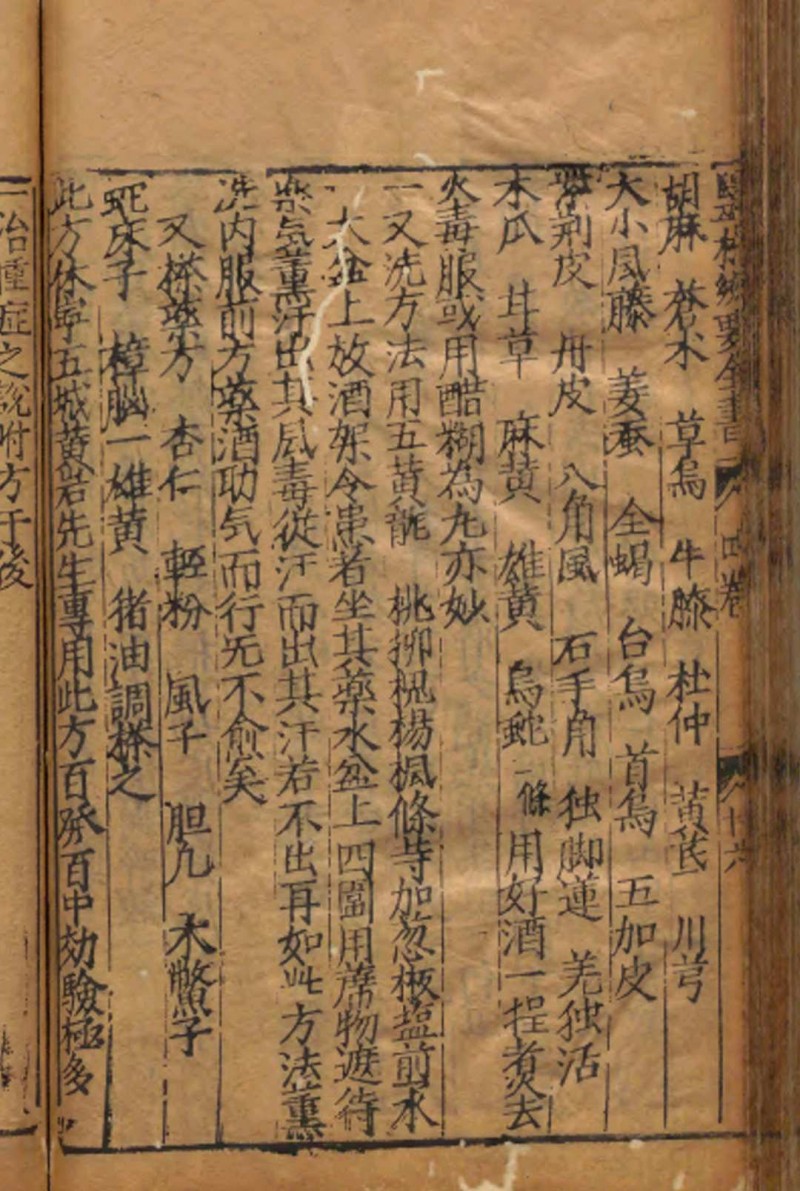 胡麻 蒼朮 草烏 牛膝 杜仲 黃芪 川芎
大小風藤 姜蚕 全蝎 台烏 首烏 五加皮
荆皮 丹皮 八角風 石手角 独脚蓮 羌独活
木瓜 甘草 麻黄 雄黄 烏蛇一條 用好酒一埕煮去
火毒服或用醋糊為丸亦妙
一又洗方法用五黃 桃柳槐楊楓條等加葱椒塩煎水
大盆上放酒架令患者坐其薬水盆上四圍用蓆物遮待
藥気薫黑汗出其風毒從汗而出其汗若不出再如此方法薫
洗内服前方藥酒助気而行无不愈矣
又搽藥方 杏仁 輕粉 風子 胆凡 木鱉子
蛇床子 樟腦一雄黄 猪油調搽之
此方休寧五城黄岩先生專用此方百發百中効驗極多
一治腫症之說附方于後